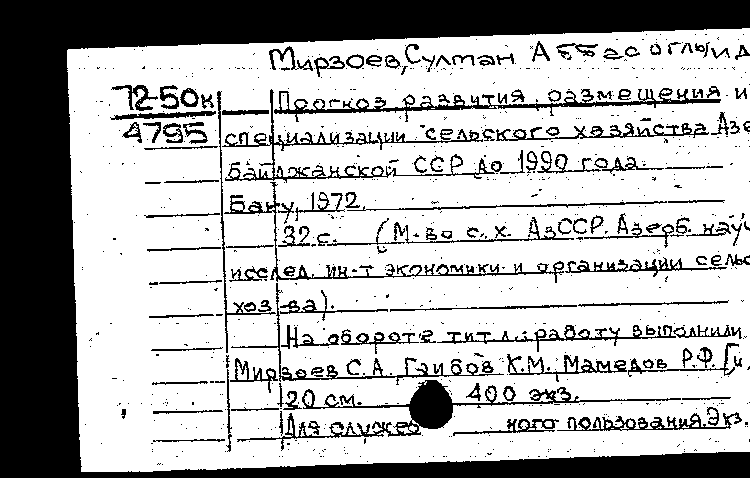 Мирзоев, Султан Аббас оглы и д
72-50к
4795
Прогноз развития, размещения и
специализации сельского хозяйства Азе
байджанской ССР до 1990 года.
Баку, 1972.
32 с. (М-во с. х. АзССР. Азерб. науч
исслед. ин-т экономики и организации сельс
хоз-ва).
На обороте тит. л.: работу выполнили
Мирзоев С.А., Гаибов К.М., Мамедов Р.Ф. [и,
20 см. 400 экз.
Для служеб ного пользования. Экз.